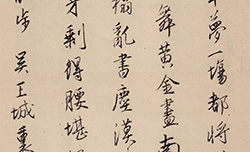 年夢一場都將
舞黃金盡南
榻亂書塵漠
牙剩得腰堪
步吳王城裏